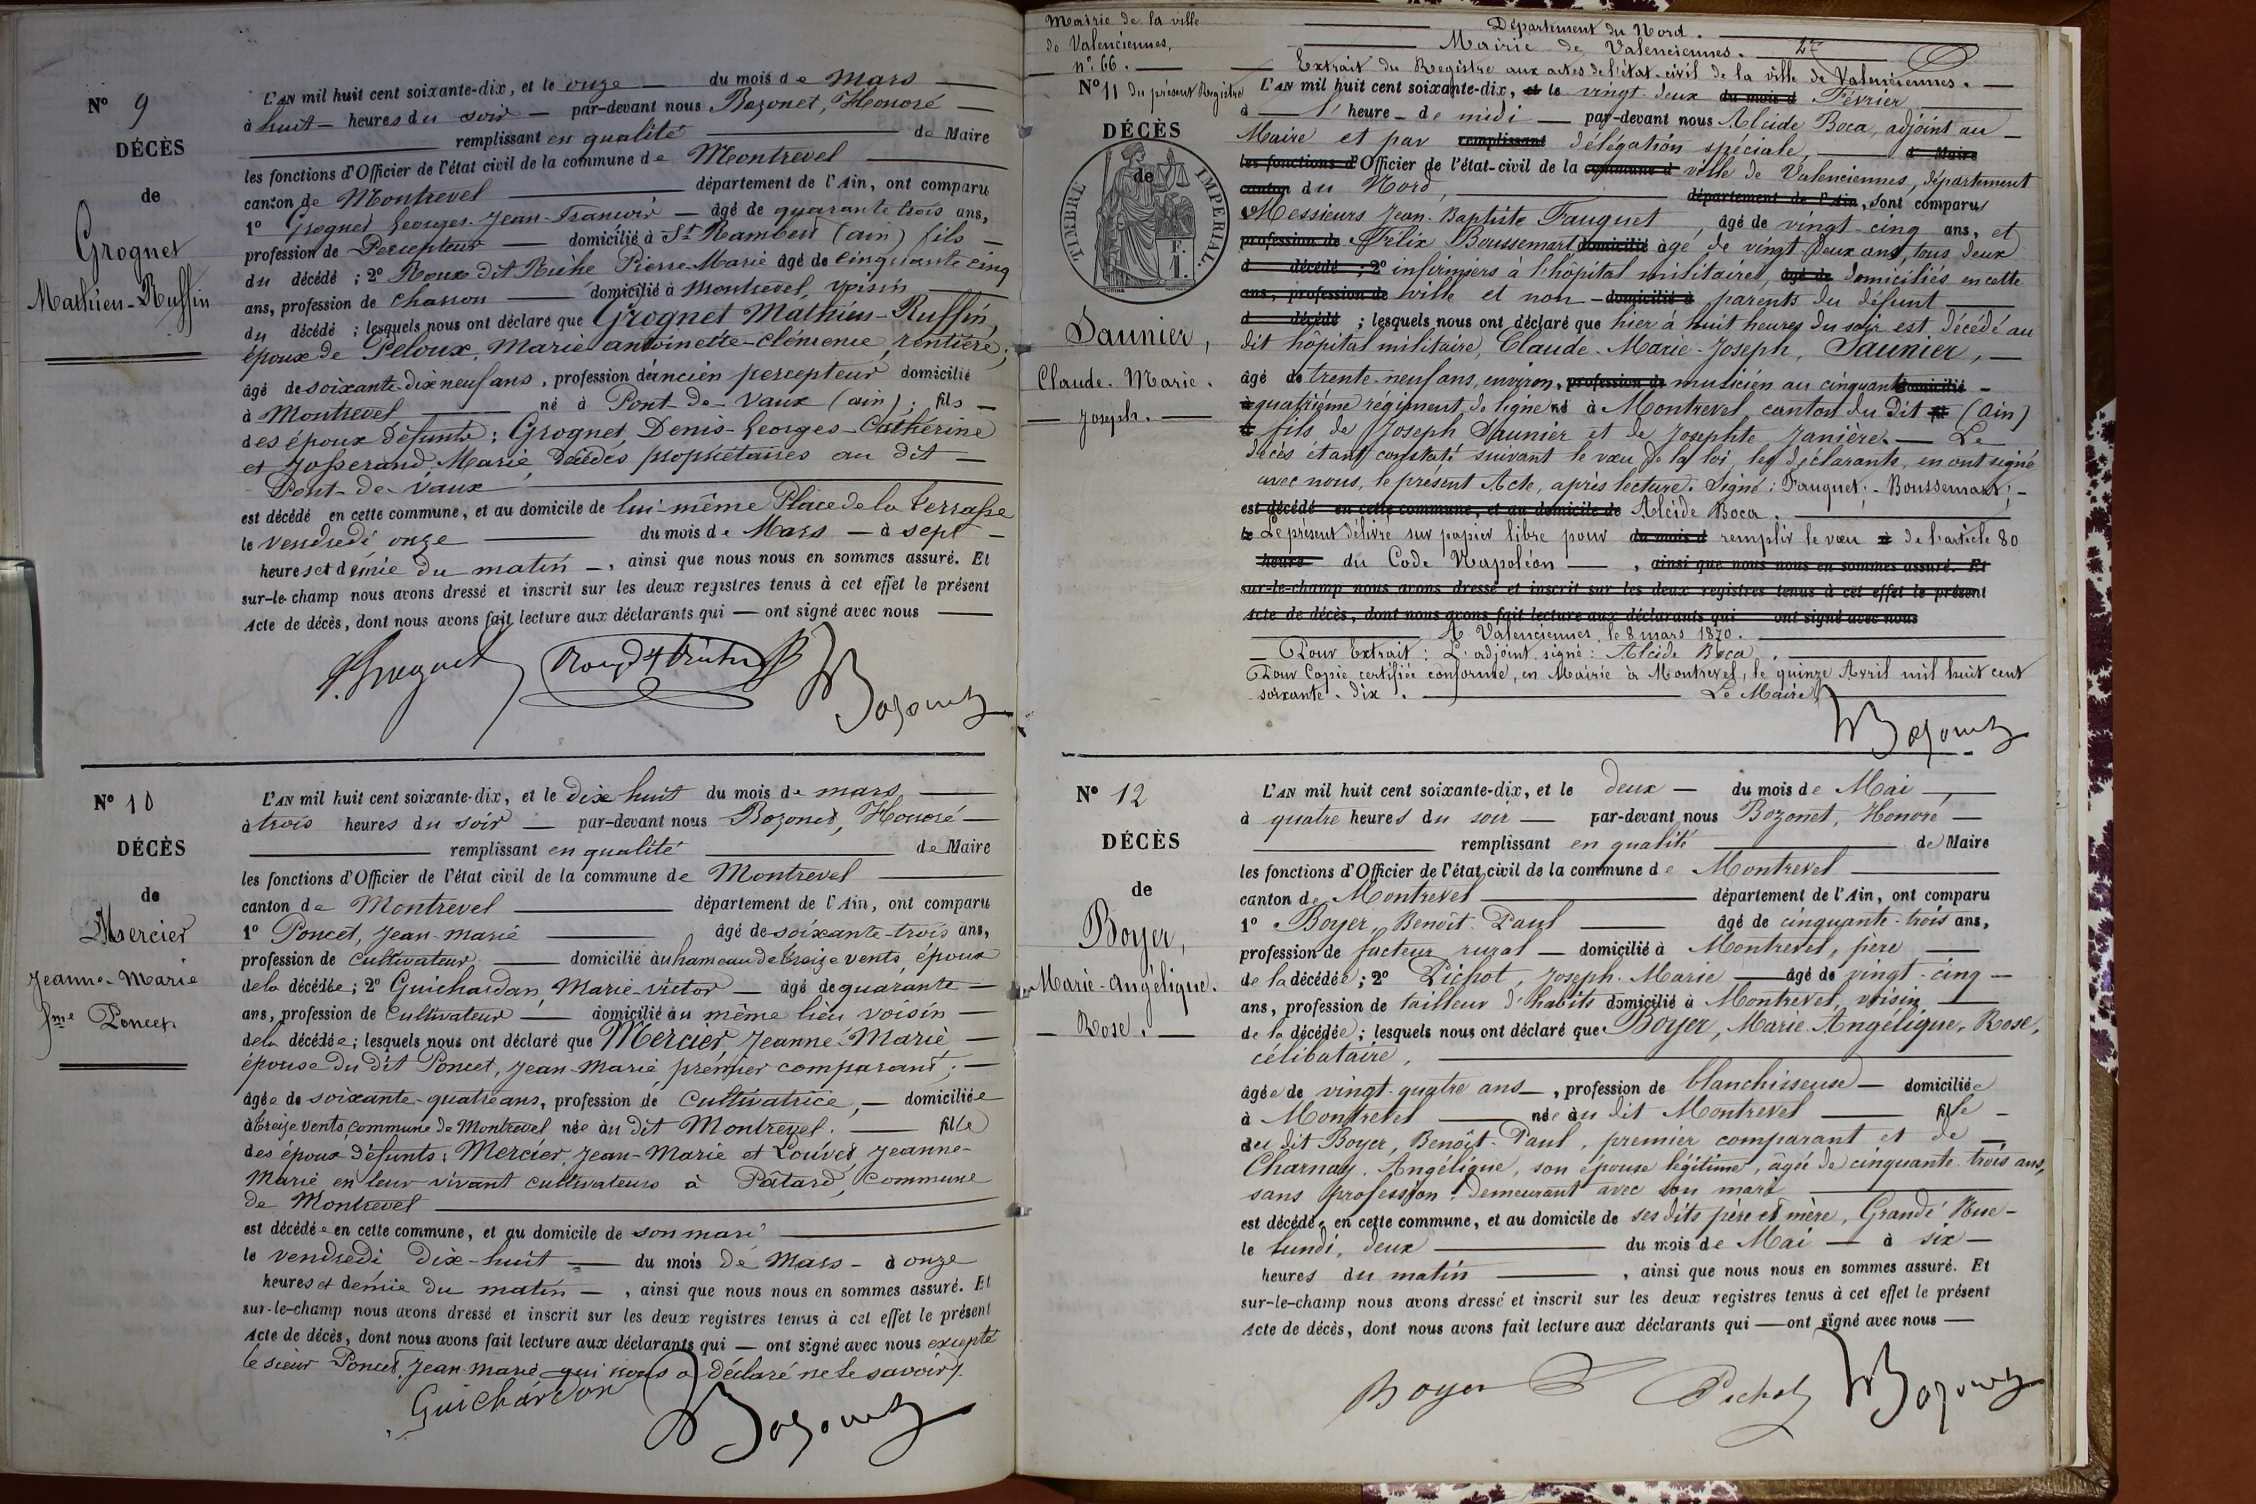 N° 9
DÉCÈS
de
Grognet
Mathieu-Ruffin
L'AN mil huit cent soixante-dix, et le onze du mois de Mars
à huit heures du soir par-devant nous Bozonet, Honoré
remplissant en qualité de Maire
les fonctions d'Officier de l'état civil de la commune de Montrevel
canton de Montrevel département de l'Ain, ont comparu
1° Grognet Georges-Jean-François âgé de quarante trois ans,
profession de Percepteur domicilié à St Rambert (ain) fils
du décédé ; 2° Roux dit Ruche Pierre-Marie âgé de cinquante cinq
ans, profession de charron domicilié à Montrevel, voisin
du décédé ; lesquels nous ont déclaré que Grognet Mathieu-Ruffin,
époux de Peloux, Marie antoinette-clémence, rentière,
âgé de soixante-dix neuf ans, profession d'ancien percepteur domicilié
à Montrevel né à Pont-de-Vaux (ain), fils
des époux défunts : Grognet, Denis-Georges-Cathérine
et Josserand, Marie, décédés propriétaires au dit
Pont-de-Vaux
est décédé en cette commune, et au domicile de lui-même Place de la terrasse
le vendredi onze du mois de Mars à sept
heures et demie du matin, ainsi que nous nous en sommes assuré. Et
sur-le-champ nous avons dressé et inscrit sur les deux registres tenus à cet effet le présent
Acte de décès, dont nous avons fait lecture aux déclarants qui ont signé avec nous
Grognet
Bozonet
N° 10
DÉCÈS
de
Mercier
Jeanne-Marie
fme Poncet
L'AN mil huit cent soixante-dix, et le dix huit du mois de mars
à trois heures du soir par-devant nous Bozonet, Honoré
remplissant en qualité de Maire
les fonctions d'Officier de l'état civil de la commune de Montrevel
canton de Montrevel département de l'Ain, ont comparu
1° Poncet, Jean-Marie âgé de soixante-trois ans,
profession de cultivateur domicilié au hameau de treize vents, époux
de la décédée ; 2° Guichardan, Marie-victor âgé de quarante
ans, profession de cultivateur domicilié au même lieu voisin
de la décédée ; lesquels nous ont déclaré que Mercier Jeanne-Marie
épouse du dit Poncet, Jean-Marie premier comparant ;
âgée de soixante-quatre ans, profession de cultivatrice, domiciliée
à treize vents commune de Montrevel née au dit Montrevel. fille
des époux défunts : Mercier, Jean-Marie et Louvet Jeanne-
Marie en leur vivant cultivateurs à Patard, commune
de Montrevel
est décédée en cette commune, et au domicile de son mari
le vendredi dix-huit du mois de Mars à onze
heures et demie du matin, ainsi que nous nous en sommes assuré. Et
sur-le-champ nous avons dressé et inscrit sur les deux registres tenus à cet effet le présent
Acte de décès, dont nous avons fait lecture aux déclarants qui ont signé avec nous excepté
le sieur Poncet, Jean-Marie qui nous a déclaré ne le savoir.
Guichardon
Bozonet
Mairie de la ville
de Valenciennes,
n° 66.
N° 11 du présent Registre
DÉCÈS
de
TIMBRE IMPERIAL.
Saunier,
Claude-Marie.
Joseph.
Département du Nord.
Mairie de Valenciennes. 27
Extrait du Registre aux actes de l'état-civil de la ville de Valenciennes.
L'AN mil huit cent soixante-dix, et le vingt-deux du mois d Février
à l'heure de midi par-devant nous Alcide Boca, adjoint au
Maire et par remplissant délégation spéciale, d Maire
les fonctions d'Officier de l'état-civil de la commune d ville de Valenciennes, département
canton du Nord, département de l'Ain, sont comparus
Messieurs Jean-Baptiste Fauquet âgé de vingt-cinq ans, et
profession de Félix Boussemart domicilié âgé de vingt deux ans, tous deux
d décédé ; 2° infirmiers à l'hôpital militaire, âgé de domiciliés en cette
ans, profession de ville et non domicilié à parents du défunt
d décédé ; lesquels nous ont déclaré que hier à huit heures du soir est décédé au
dit hôpital militaire, Claude-Marie-Joseph, Saunier,
âgé de trente-neuf ans, environ, profession de musicien au cinquante domicilié
à quatrième régiment de ligne né à Montrevel, canton du dit (Ain)
fils de Joseph Saunier et de Josephte Janière. Le
décès étant constaté suivant le vœu de la loi, les déclarants en ont signé
avec nous, le présent Acte, après lecture. Signé : Fauquet ; Boussemart ;
est décédé en cette commune, et au domicile de Alcide Boca.
le Le présent délivré sur papier libre pour du mois d remplir le vœu à de l'article 80
heure du Code Napoléon, ainsi que nous nous en sommes assuré. Et
sur-le-champ nous avons dressé et inscrit sur les deux registres tenus à cet effet le présent
Acte de décès, dont nous avons fait lecture aux déclarants qui ont signé avec nous
A Valenciennes, le 8 mars 1870.
Pour Extrait : L'adjoint signé : Alcide Boca.
Pour Copie certifiée conforme, en Mairie à Montrevel, le quinze Avril mil huit cent
soixante-dix. Le Maire
Bozonet
N° 12
DÉCÈS
de
Boyer,
Marie-Angélique.
Rose.
L'AN mil huit cent soixante-dix, et le deux du mois de Mai
à quatre heures du soir par-devant nous Bozonet, Honoré
remplissant en qualité de Maire
les fonctions d'Officier de l'état civil de la commune de Montrevel
canton de Montrevel département de l'Ain, ont comparu
1° Boyer, Benoît-Paul âgé de cinquante-trois ans,
profession de facteur rural domicilié à Montrevel, père
de la décédée ; 2° Pichot, Joseph-Marie âgé de vingt-cinq
ans, profession de tailleur d'habits domicilié à Montrevel, voisin
de la décédée ; lesquels nous ont déclaré que Boyer, Marie-Angélique-Rose,
célibataire,
âgée de vingt-quatre ans, profession de blanchisseuse domiciliée
à Montrevel née au dit Montrevel fille
du dit Boyer, Benoît-Paul, premier comparant et de
Charnay, Angélique, son épouse légitime, âgée de cinquante trois ans,
sans profession, demeurant avec son mari
est décédée en cette commune, et au domicile de ses dits père et mère, Grande Rue
le lundi, deux du mois de Mai à six
heures du matin, ainsi que nous nous en sommes assuré. Et
sur-le-champ nous avons dressé et inscrit sur les deux registres tenus à cet effet le présent
Acte de décès, dont nous avons fait lecture aux déclarants qui ont signé avec nous
Boyer Pichot Bozonet